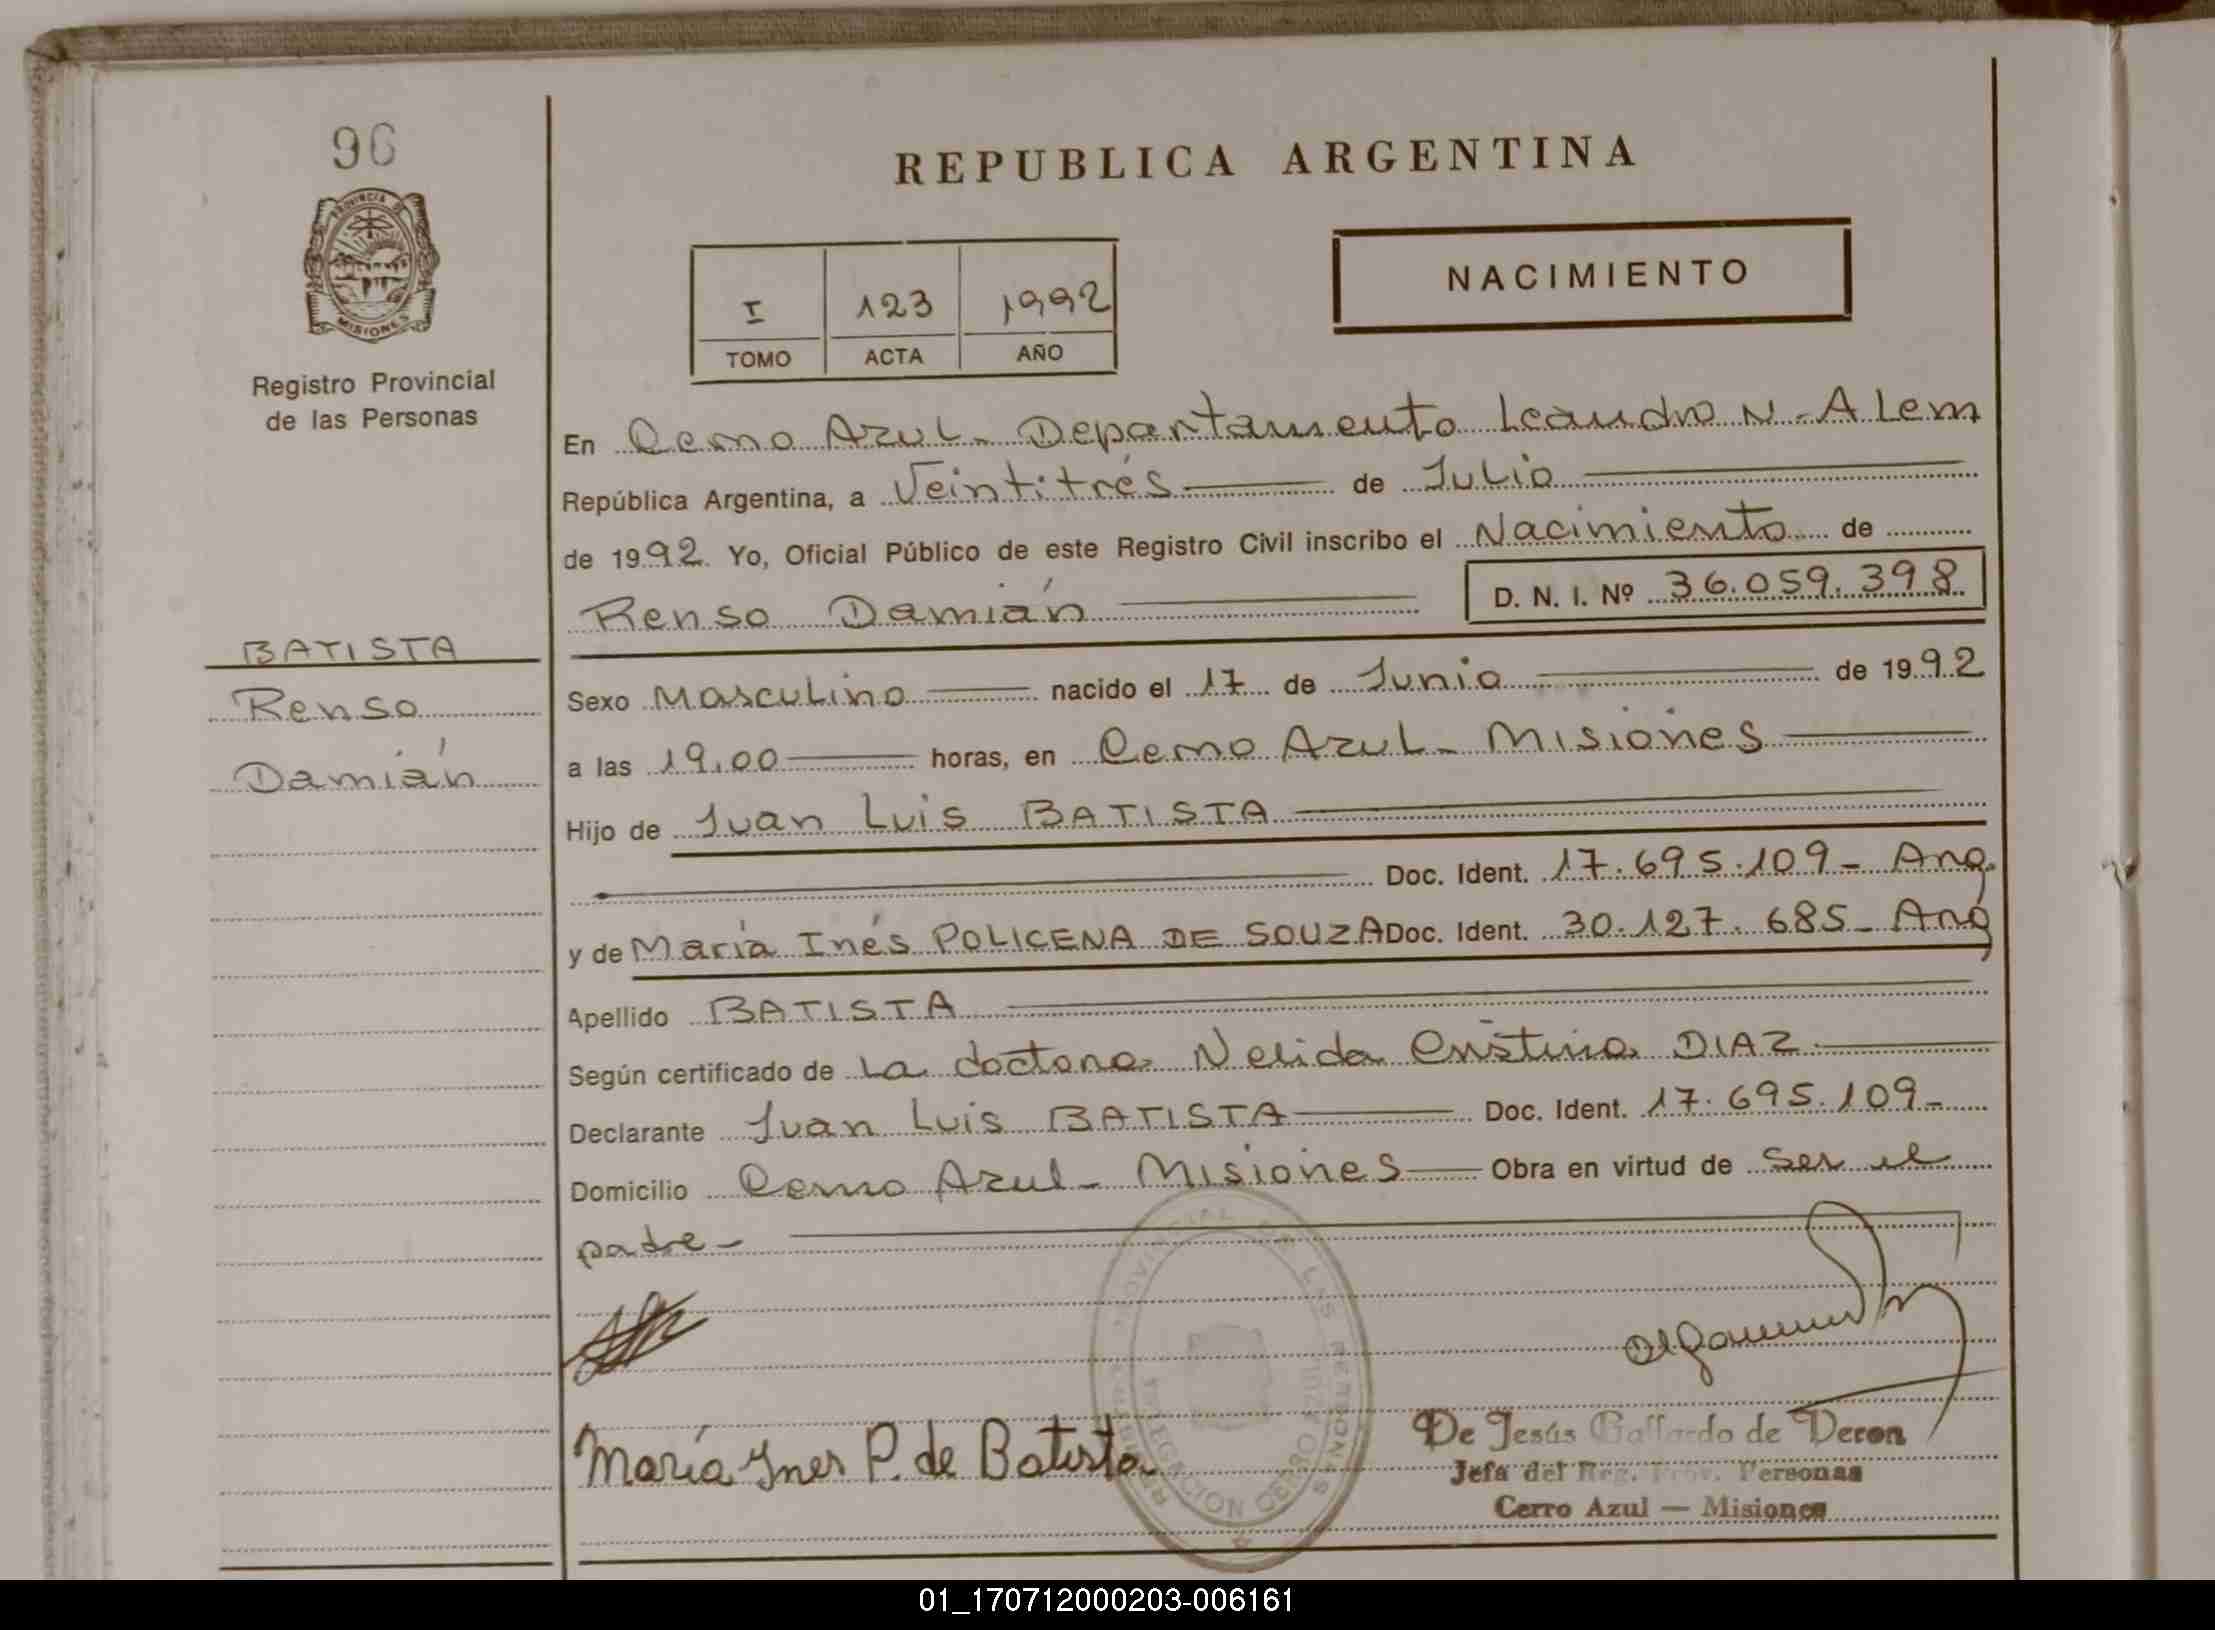 96
PROVINCIA DE
MISIONES
Registro Provincial
de las Personas
BATISTA
Renso
Damián
REPUBLICA ARGENTINA
I 123 1992
TOMO ACTA AÑO
NACIMIENTO
En Cerro Azul - Departamento Leandro N. Alem
República Argentina, a Veintitrés de Julio
de 1992. Yo, Oficial Público de este Registro Civil inscribo el Nacimiento de
Renso Damián D. N. I. Nº 36.059.398
Sexo Masculino nacido el 17 de Junio de 1992
a las 19,00 horas, en Cerro Azul - Misiones
Hijo de Juan Luis BATISTA
Doc. Ident. 17.695.109 - Arg.
y de María Inés POLICENA DE SOUZA Doc. Ident. 30.127.685 - Arg
Apellido BATISTA
Según certificado de La doctora Nelida Cristina DIAZ
Declarante Juan Luis BATISTA Doc. Ident. 17.695.109 -
Domicilio Cerro Azul - Misiones Obra en virtud de ser el
padre -
María Ines P. de Batista
De Jesús Gallardo de Deron
Jefa del Reg. Prov. Personas
Cerro Azul — Misiones
01_170712000203-006161